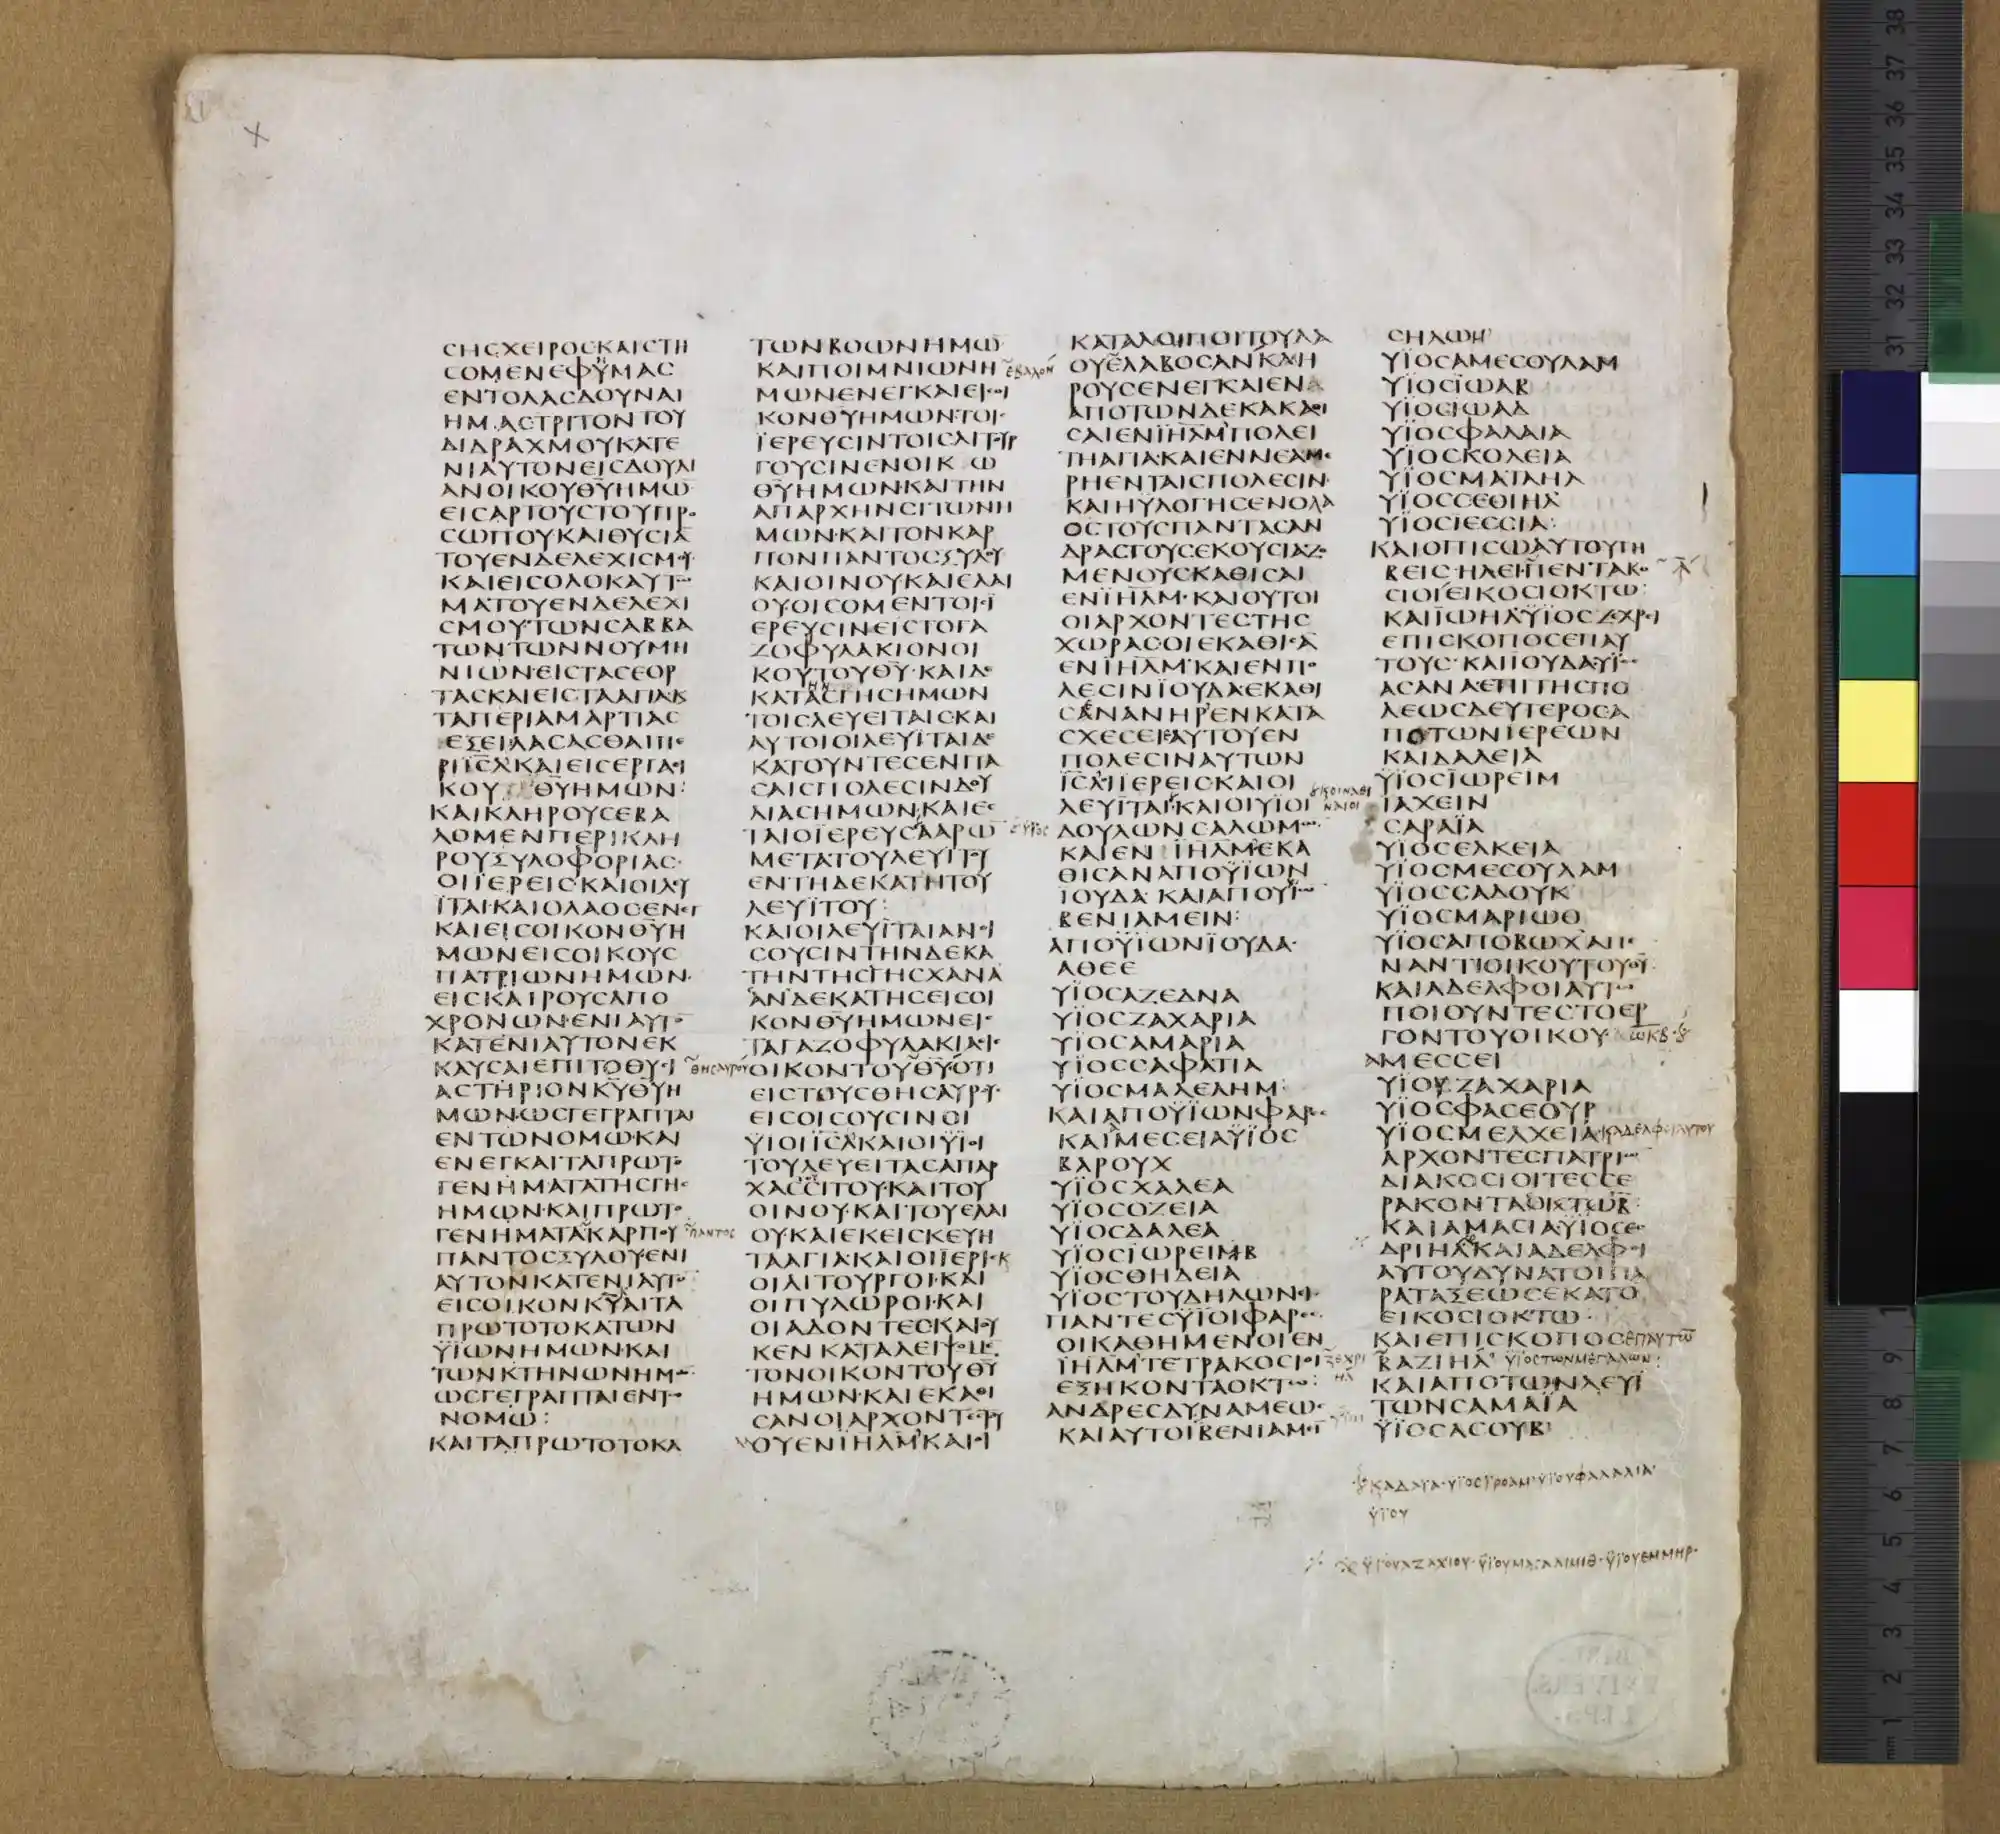 ϹΗϹΧΕΙΡΟϹΚΑΙϹΤΗ
ϹΟΜΕΝΕΦΥΜΑϹ
ΕΝΤΟΛΑϹΔΟΥΝΑΙ
ΗΜΑϹΤΡΙΤΟΝΤΟΥ
ΔΙΔΡΑΧΜΟΥΚΑΤΕ
ΝΙΑΥΤΟΝΕΙϹΔΟΥΛΙ
ΑΝΟΙΚΟΥΘ̅Υ̅ΗΜΩ̅
ΕΙϹΑΡΤΟΥϹΤΟΥΠΡΟ
ϹΩΠΟΥΚΑΙΘΥϹΙΑ̅
ΤΟΥΕΝΔΕΛΕΧΙϹΜΟΥ
ΚΑΙΕΙϹΟΛΟΚΑΥΤΩ
ΜΑΤΟΥΕΝΔΕΛΕΧΙ
ϹΜΟΥ·ΤΩΝϹΑΒΒΑ
ΤΩΝΤΩΝΝΟΥΜΗ
ΝΙΩΝ·ΕΙϹΤΑϹΕΟΡ
ΤΑϹΚΑΙΕΙϹΤΑΑΓΙΑΚ
ΤΑΠΕΡΙΑΜΑΡΤΙΑϹ
ΕΞΕΙΛΑϹΑϹΘΑΙΠΕ
ΡΙΙ̅Ϲ̅Λ̅ΚΑΙΕΙϹΕΡΓΑ
ΚΟΥ Θ̅Υ̅ΗΜΩΝ:
ΚΑΙΚΛΗΡΟΥϹΕΒΑ
ΛΟΜΕΝΠΕΡΙΚΛΗ
ΡΟΥΞΥΛΟΦΟΡΙΑϹ·
ΟΙΪΕΡΕΙϹ·ΚΑΙΟΙΛΕΥ
ΪΤΑΙ·ΚΑΙΟΛΑΟϹΕΝΕΓ
ΚΑΙΕΙϹΟΙΚΟΝΘ̅Υ̅Η
ΜΩΝΕΙϹΟΙΚΟΥϹ
ΠΑΤΡΙΩΝΗΜΩΝ·
ΕΙϹΚΑΙΡΟΥϹΑΠΟ
ΧΡΟΝΩΝ·ΕΝΙΑΥΤΟ
ΚΑΤΕΝΙΑΥΤΟΝΕΚ
ΚΑΥϹΑΙΕΠΙΤΟΘΥϹΙ
ΑϹΤΗΡΙΟΝΚ̅Υ̅Θ̅Υ̅Η
ΜΩΝ·ΩϹΓΕΓΡΑΠΤΑΙ
ΕΝΤΩΝΟΜΩ·ΚΑΙ
ΕΝΕΓΚΑΙΤΑΠΡΩΤΟ
ΓΕΝΗΜΑΤΑΤΗϹΓΗϹ
ΗΜΩΝ·ΚΑΙΠΡΩΤΟ
ΓΕΝΗΜΑΤΑΚΑΡΠΟΥ
ΠΑΝΤΟϹΞΥΛΟΥΕΝΙ
ΑΥΤΟΝΚΑΤΕΝΙΑΥΤΟ
ΕΙϹΟΙΚΟΝΚ̅Υ̅ΑΙΤΑ
ΠΡΩΤΟΤΟΚΑΤΩΝ
ΫΙΩΝΗΜΩΝ·ΚΑΙ
ΤΩΝΚΤΗΝΩΝΗΜΩ
ΩϹΓΕΓΡΑΠΤΑΙΕΝΤΩ
ΝΟΜΩ:
ΚΑΙΤΑΠΡΩΤΟΤΟΚΑ
ΤΩΝΒΟΩΝΗΜΩ̅
ΚΑΙΠΟΙΜΝΙΩΝΗ
ΜΩΝΕΝΕΓΚΑΙΕΙϹΟΙ
ΚΟΝΘ̅Υ̅ΗΜΩΝ·ΤΟΙϹ
ΪΕΡΕΥϹΙΝΤΟΙϹΛΙΤΟΥΡ
ΓΟΥϹΙΝΕΝΟΙΚΩ
Θ̅Υ̅ΗΜΩΝ·ΚΑΙΤΗΝ
ΑΠΑΡΧΗΝϹΙΤΩΝΗ
ΜΩΝ·ΚΑΙΤΟΝΚΑΡ
ΠΟΝΠΑΝΤΟϹΞΥΛΟΥ
ΚΑΙΟΙΝΟΥΚΑΙΕΛΑΙ
ΟΥ·ΟΙϹΟΜΕΝΤΟΙϹΪ
ΕΡΕΥϹΙΝΕΙϹΤΟΓΑ
ΖΟΦΥΛΑΚΙΟΝΟΙ
ΚΟΥΤΟΥΘ̅Υ̅·ΚΑΙΔΕ
ΚΑΤΑϹΓΗϹΗΜΩΝ
ΤΟΙϹΛΕΥΕΙΤΑΙϹ·ΚΑΙ
ΑΥΤΟΙΟΙΛΕΥΪΤΑΙΔΕ
ΚΑΤΟΥΝΤΕϹΕΝΠΑ
ϹΑΙϹΠΟΛΕϹΙΝΔΟΥ
ΛΙΑϹΗΜΩΝ·ΚΑΙΕϹ
ΤΑΙΟΪΕΡΕΥϹΑΑΡΩ̅
ΜΕΤΑΤΟΥΛΕΥΙΤΟΥ
ΕΝΤΗΔΕΚΑΤΗΤΟΥ
ΛΕΥΪΤΟΥ:
ΚΑΙΟΙΛΕΥΪΤΑΙΑΝΟΙ
ϹΟΥϹΙΝΤΗΝΔΕΚΑ
ΤΗΝΤΗϹΓΗϹΧΑΝΑ
ΑΝΔΕΚΑΤΗϹΕΙϹΟΙ
ΚΟΝΘ̅Υ̅ΗΜΩΝΕΙϹ
ΤΑΓΑΖΟΦΥΛΑΚΙΑΕΙϹ
ΟΙΚΟΝΤΟΥΘ̅Υ̅ΟΤΙ
ΕΙϹΤΟΥϹΘΗϹΑΥΡΟΥ
ΕΙϹΟΙϹΟΥϹΙΝΟΙ
ΫΙΟΙΪ̅Ϲ̅Λ̅ΚΑΙΟΙΫΪΟΙ
ΤΟΥΛΕΥΕΙΤΑϹΑΠΑΡ
ΧΑϹϹΙΤΟΥ·ΚΑΙΤΟΥ
ΟΙΝΟΥ·ΚΑΙΤΟΥΕΛΑΙ
ΟΥ·ΚΑΙΕΚΕΙϹΚΕΥΗ
ΤΑΑΓΙΑ·ΚΑΙΟΙΪΕΡΙϹΚ
ΟΙΛΙΤΟΥΡΓΟΙ·ΚΑΙ
ΟΙΠΥΛΩΡΟΙ·ΚΑΙ
ΟΙΑΔΟΝΤΕϹΚΑΙΟΥ
ΚΕΝΚΑΤΑΛΕΙΨΟΜΕ
ΤΟΝΟΙΚΟΝΤΟΥΘ̅Υ̅
ΗΜΩΝ·ΚΑΙΕΚΑΘΙ
ϹΑΝΟΙΑΡΧΟΝΤΕϹΤΟΥ
ΟΥΕΝΪ̅Η̅Λ̅Μ̅ΚΑΙΟΙ
ΚΑΤΑΛΟΙΠΟΙΤΟΥΛΑ
ΟΥΕΛΑΒΟϹΑΝΚΛΗ
ΡΟΥϹΕΝΕΓΚΑΙΕΝΑ
ΑΠΟΤΩΝΔΕΚΑΚΑΘΙ
ϹΑΙΕΝΪ̅Η̅Λ̅Μ̅ΠΟΛΕΙ
ΤΗΑΓΙΑ·ΚΑΙΕΝΝΕΑΜΕ
ΡΗΕΝΤΑΙϹΠΟΛΕϹΙΝ·
ΚΑΙΗΥΛΟΓΗϹΕΝΟΛΑ
ΟϹΤΟΥϹΠΑΝΤΑϹΑΝ
ΔΡΑϹΤΟΥϹΕΚΟΥϹΙΑΖΟ
ΜΕΝΟΥϹΚΑΘΙϹΑΙ
ΕΝΪ̅Η̅Λ̅Μ̅·ΚΑΙΟΥΤΟΙ
ΟΙΑΡΧΟΝΤΕϹΤΗϹ
ΧΩΡΑϹΟΙΕΚΑΘΙϹΑ̅
ΕΝΪ̅Η̅Λ̅Μ̅ΚΑΙΕΝΠΟ
ΛΕϹΙΝΪΟΥΔΑΕΚΑΘΙ
ϹΑΝΑΝΗΡΕΝΚΑΤΑ
ϹΧΕϹΕΙΑΥΤΟΥΕΝ
ΠΟΛΕϹΙΝΑΥΤΩΝ
Ϊ̅Ϲ̅Λ̅ΪΕΡΕΙϹΚΑΙΟΙ
ΛΕΥΪΤΑΙΚΑΙΟΙΥΪΟΙ
ΔΟΥΛΩΝϹΑΛΩΜΩ
ΚΑΙΕΝΪ̅Η̅Λ̅Μ̅ΕΚΑ
ΘΙϹΑΝΑΠΟΫΙΩΝ
ΪΟΥΔΑ·ΚΑΙΑΠΟΥΪΩ
ΒΕΝΙΑΜΕΙΝ:
ΑΠΟΫΙΩΝΪΟΥΔΑ·
ΑΘΕΕ
ΥΪΟϹΑΖΕΔΝΑ
ΥΪΟϹΖΑΧΑΡΙΑ
ΥΪΟϹΑΜΑΡΙΑ
ΥΪΟϹϹΑΦΑΤΙΑ
ΥΪΟϹΜΑΛΕΛΗΜ·
ΚΑΙΑΠΟΫΪΩΝΦΑΡΕϹ
ΚΑΙΜΕϹΕΙΑΫΪΟϹ
ΒΑΡΟΥΧ
ΥΪΟϹΧΑΛΕΑ
ΥΪΟϹΟΖΕΙΑ
ΥΪΟϹΔΑΛΕΑ
ΥΪΟϹΪΩΡΕΙΜΒ
ΥΪΟϹΘΗΔΕΙΑ
ΥΪΟϹΤΟΥΔΗΛΩΝΕΙ
ΠΑΝΤΕϹΫΪΟΙΦΑΡΕϹ
ΟΙΚΑΘΗΜΕΝΟΙΕΝ
Ϊ̅Η̅Λ̅Μ̅ΤΕΤΡΑΚΟϹΙΟΙ
ΕΞΗΚΟΝΤΑΟΚΤΩ:
ΑΝΔΡΕϹΔΥΝΑΜΕΩϹ
ΚΑΙΑΥΤΟΙΒΕΝΙΑΜΕΙ
ϹΗΛΩΜ
ΥΪΟϹΑΜΕϹΟΥΛΑΜ
ΥΪΟϹΪΩΑΒ
ΥΪΟϹΙΩΑΔ
ΥΪΟϹΦΑΛΑΙΑ
ΥΪΟϹΚΟΛΕΙΑ
ΥΪΟϹΜΑΓΑΗΛ
ΥΪΟϹϹΕΘΙΗΛ
ΥΪΟϹΪΕϹϹΙΑ:
ΚΑΙΟΠΙϹΩΑΥΤΟΥΓΗ
ΒΕΙϹ·ΗΛΕΙ·ΠΕΝΤΑΚΟ
ϹΙΟΙΕΙΚΟϹΙΟΚΤΩ:
ΚΑΙΪΩΗΛΫΪΟϹΖΕΧΡΕΙ
ΕΠΙϹΚΟΠΟϹΕΠΑΥ
ΤΟΥϹ·ΚΑΙΙΟΥΔΑΥΪΟϹ
ΑϹΑΝΑΕΠΙΤΗϹΠΟ
ΛΕΩϹΔΕΥΤΕΡΟϹΑ
ΠΟΤΩΝΙΕΡΕΩΝ
ΚΑΙΔΑΛΕΙΑ
ΫΪΟϹΪΩΡΕΙΜ
ΙΑΧΕΙΝ
ϹΑΡΑΪΑ
ΥΪΟϹΕΛΚΕΙΑ
ΥΪΟϹΜΕϹΟΥΛΑΜ
ΥΪΟϹϹΑΔΟΥΚ
ΥΪΟϹΜΑΡΙΩΘ
ΥΪΟϹΑΠΟΒΩΧΑΠΕ
ΝΑΝΤΙΟΙΚΟΥΤΟΥΘ̅Υ̅
ΚΑΙΑΔΕΛΦΟΙΑΥΤΩ
ΠΟΙΟΥΝΤΕϹΤΟΕΡ
ΓΟΝΤΟΥΟΙΚΟΥ·
ΑΜΕϹϹΕΙ
ΥΪΟΥΖΑΧΑΡΙΑ
ΥΪΟϹΦΑϹΕΟΥΡ
ΥΪΟϹΜΕΛΧΕΙΑ·
ΑΡΧΟΝΤΕϹΠΑΤΡΙΩ
ΔΙΑΚΟϹΙΟΙΤΕϹϹΕ
ΡΑΚΟΝΤΑΟΚΤΩ
ΚΑΙΑΜΑϹΙΑΫΪΟϹΕϹ
ΔΡΙΗΛΚΑΙΑΔΕΛΦΟΙ
ΑΥΤΟΥΔΥΝΑΤΟΙΠΑ
ΡΑΤΑΞΕΩϹΕΚΑΤΟ̅
ΕΙΚΟϹΙΟΚΤΩ·
ΚΑΙΕΠΙϹΚΟΠΟϹΕΠΑΥΤΩ̅
ΒΑΖΙΗΛ ΫΪΟϹΤΩΝΜΕΓΑΛΩΝ:
ΚΑΙΑΠΟΤΩΝΛΕΥΪ
ΤΩΝϹΑΜΑΪΑ
ΫΪΟϹΑϹΟΥΒ